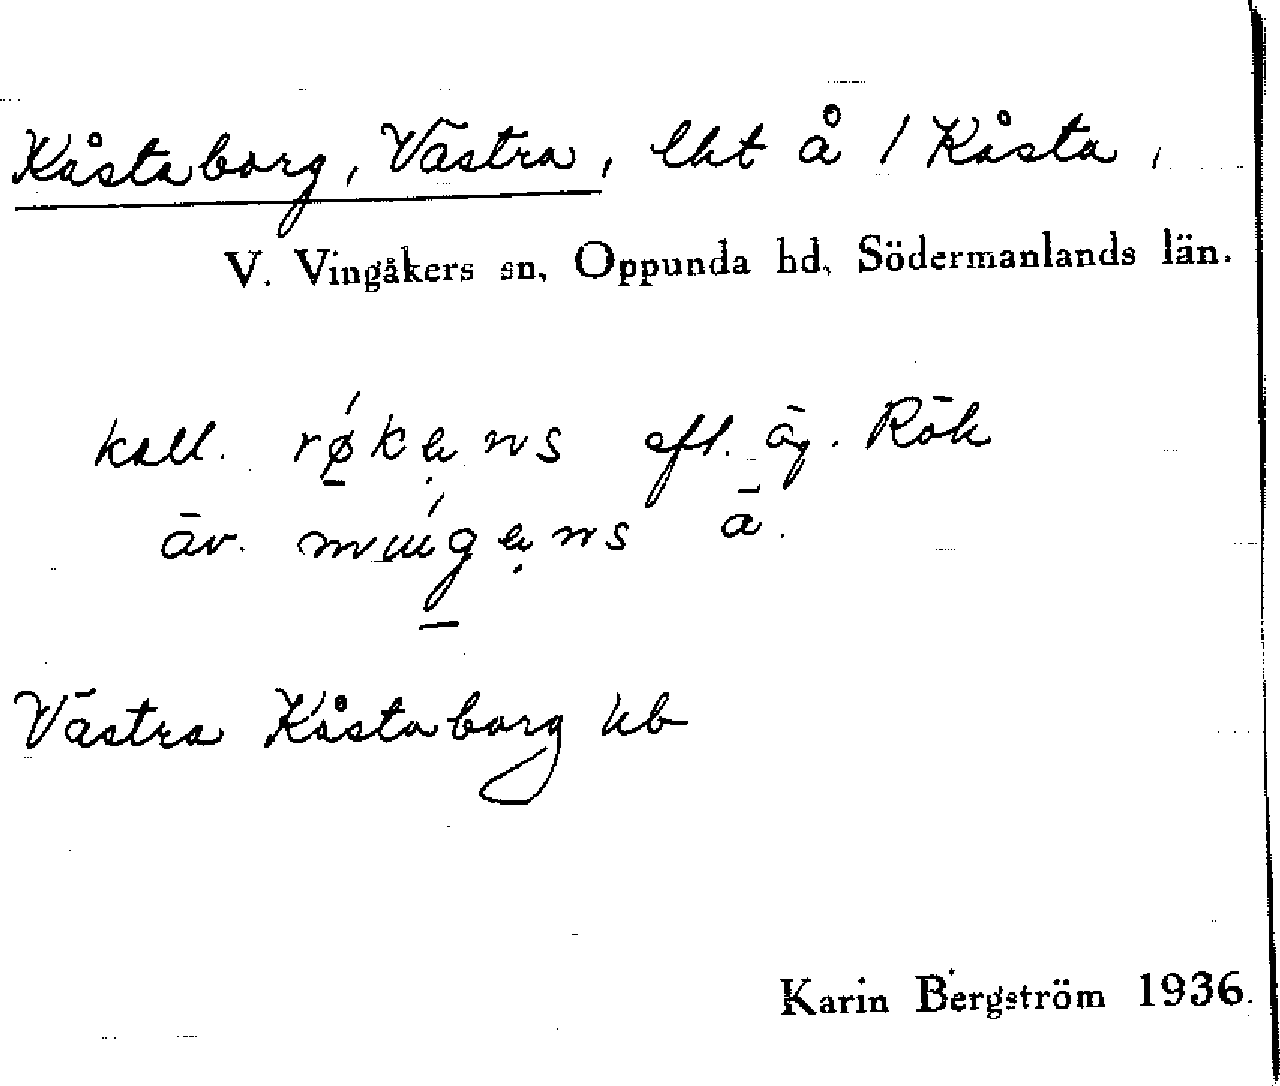 Kåstaborg, Västra, lht å 1 Kåsta,
V. Vingåkers sn, Oppunda hd, Södermanlands län.
kall. eft. äg. Rök
äv.
Västra Kåstaborg kb
Karin Bergström 1936.